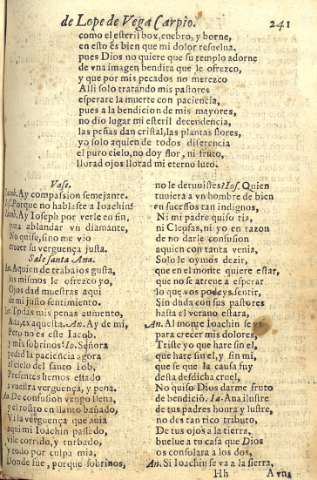 de Lope de Vega Carpio. 241
como el esteril box, enebro, y borne,
en esto es bien que mi dolor resuelua,
pues Dios no quiere que su templo adorne
de vna imagen bendita que le ofrezco,
y que por mis pecados no merezco
Alli solo tratando mis pastores
esperare la muerte con paciencia,
pues a la bendicion de mis mayores,
no dio lugar mi esteril decendencia,
las peñas dan cristal, las plantas flores,
yo solo a quien de todos diferencia
el puro cielo, no doy flor, ni fruto,
llorad ojos llorad mi eterno luto.
Vase.
Ay compassion semejante.
Porque no hablaste a Ioachin?
Ay Ioseph por verle en fin,
para ablandar vn diamante,
No quise, sino me vio
tuuer su verguença justa.
Sale santa Ana.
Aquien de trabajos gusta,
los mismos le ofrezco yo,
Ojos dad muestras aqui
de mi justo sentimiento.
todas mis penas aumento,
es aquesta. An. Ay de mi,
no es este Iacob,
mis sobrinos? Io. Señora
pedid la paciencia agora
al cielo del santo Iob,
Presentes hemos estado
a vuestra verguença, y pena.
An. De confusion vengo llena,
y el rostro en llanto bañado,
Vi la verguença que auia
aqui mi Ioachin passado,
vile corrido, y turbado,
y todo por culpa mia,
Donde fue, porque sobrinos,
no le detuuistes? Ios. Quien
tuuiera a vn hombre de bien
en sucessos tan indignos,
Ni mi padre quiso tia,
ni Cleofas, ni yo en razon
de no darle confusion
aquien con tanta venia,
Solo le oymos dezir,
que en el monte quiere estar,
que no se atreue a esperar
lo que vos podeys sentir,
Sin duda con sus pastores
hasta el verano estara,
An. Al monte Ioachin se va
para crecer mis dolores,
Triste yo que hare sin el,
que hare sin el, y sin mi,
que se que la causa fuy
desta desdicha cruel,
No quiso Dios darme fruto
de bendició. Ia. Ana ilustre
de tus padres honra y lustre,
no des tan rico tributo,
De tus ojos a la tierra,
buelue a tu casa que Dios
os consolara a los dos,
An. Si Ioachin se va a la sierra,
Hh A vna